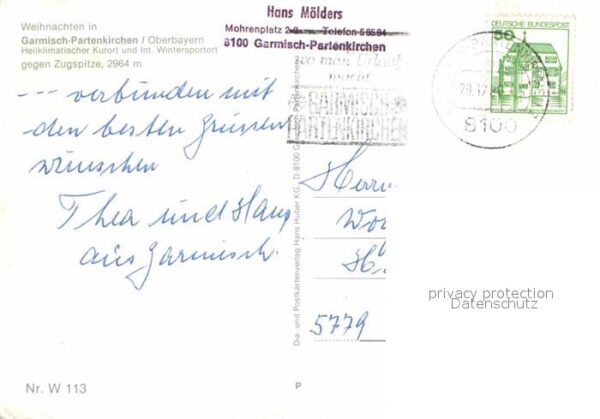 Weihnachten in
Garmisch-Partenkirchen / Oberbayern
Heilklimatischer Kurort und Int. Wintersportort
gegen Zugspitze, 2964 m
--- verbunden mit
den besten Grüssen
wünschen
Thea und Hans
aus Garmisch.
Nr. W 113
Hans Mölders
Mohrenplatz 2 Telefon 5 85 84
8100 Garmisch-Partenkirchen
wo man Urlaub
macht
GARMISCH
PARTENKIRCHEN
50
DEUTSCHE BUNDESPOST
8100
Dia- und Postkartenverlag Hans Huber KG, D-8100 Garmisch-Partenkirchen
Herrn
5779
P
privacy protection
Datenschutz